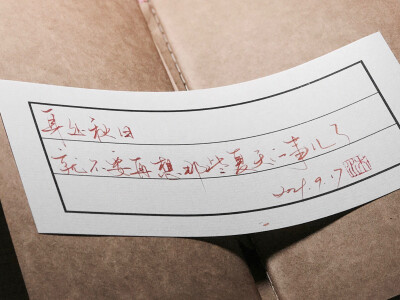 身处秋日
就不要再想那些夏天的事儿了
2021.9.17